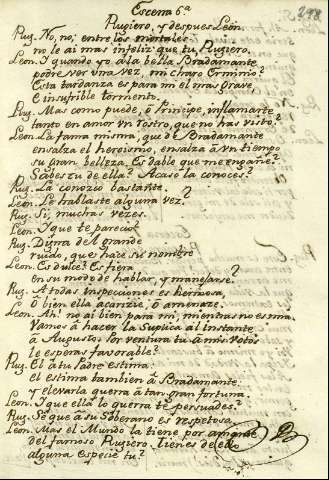 Escena 6ª
Rugiero, y despues León.
Rug. No, no; entre los mortales
no le ai mas infeliz que tu, Rugiero.
Leon. I quando yo â la bella Bradamante
podre ver una vez, mi charo Erminio?
Esta tardanza es para mi el mas grave,
è insufrible tormento.
Rug. Mas como puede, ô Principe, inflamarte
tanto en amor un rostro, que no has visto?
Leon. La fama misma, que de Bradamante
ensalza el heroismo, ensalza â un tiempo
su gran belleza. Es dable que me engañe?
Sabes tu de ella? Acaso la conoces?
Rug. La conozco bastante.
Leon. Le hablaste alguna vez?
Rug. Si, muchas veces.
Leon. I que te parecio?
Rug. Digna del grande
ruido, que hace su nombre
Leon. Es dulce? Es fiera
en su modo de hablar, y manejarse?
Rug. A todas inspecciones es hermosa,
ô bien ella acaricie, ô amenaze.
Leon. Ah! no ai bien para mi, mientras no es mia.
Vamos â hacer la suplica al instante
â Augusto. Por ventura tu â mis votos
le esperas favorable?
Rug. El â tu Padre estima:
el estima tambien â Bradamante
y elevarla querra â tan gran fortuna.
Leon. I que ella lo querra te persuades?
Rug. Sè que â su Soberano es respetosa.
Leon. Mas el Mundo la tiene por amante
del famoso Rugiero. Tienes de ello
alguna especie tu?